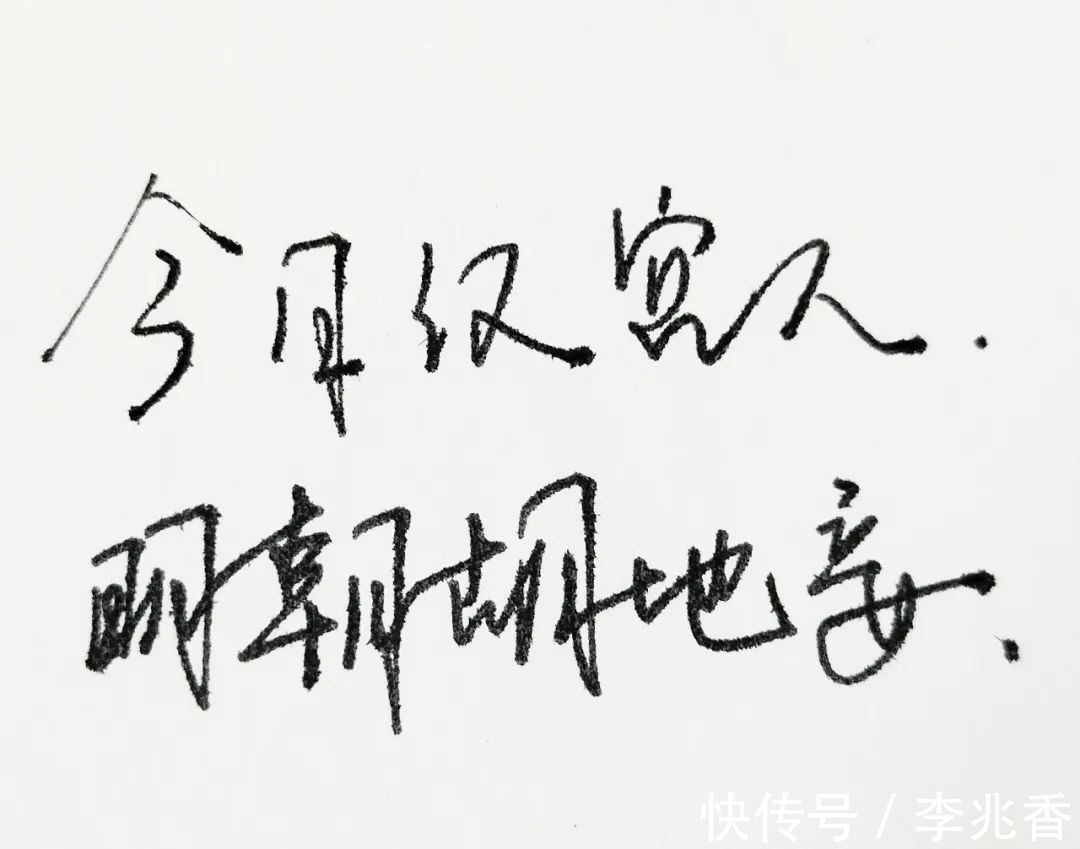 今月汉宫人.
明朝胡地妾.
快传号/李兆香